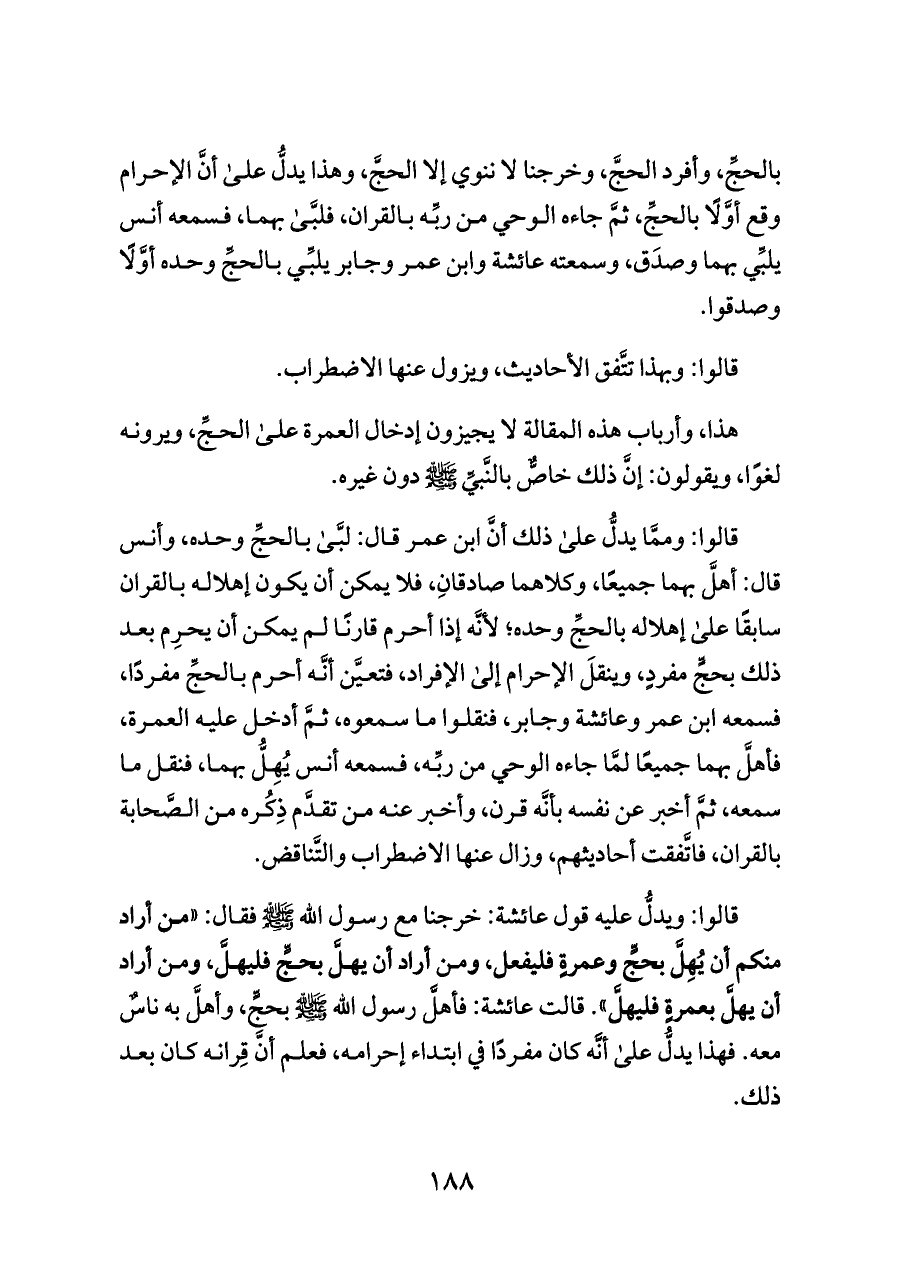 بالحجِّ، وأفرد الحجَّ، وخرجنا لا ننوي إلا الحجَّ، وهذا يدلُّ علىٰ أنَّ الإحرام
وقع أوَّلًا بالحجِّ، ثمَّ جاءه الوحي من ربِّه بالقران، فلبَّىٰ بهما، فسمعه أنس
يلبِّي بهما وصدَق، وسمعته عائشة وابن عمر وجابر يلبِّي بالحجِّ وحده أوَّلًا
وصدقوا.
قالوا: وبهذا تتَّفق الأحاديث، ويزول عنها الاضطراب.
هذا، وأرباب هذه المقالة لا يجيزون إدخال العمرة علىٰ الحجِّ، ويرونه
لغوًا، ويقولون: إنَّ ذلك خاصٌّ بالنَّبيِّ ﷺ دون غيره.
قالوا: وممَّا يدلُّ علىٰ ذلك أنَّ ابن عمر قال: لبَّىٰ بالحجِّ وحده، وأنس
قال: أهلَّ بهما جميعًا، وكلاهما صادقانِ، فلا يمكن أن يكون إهلاله بالقران
سابقًا علىٰ إهلاله بالحجِّ وحده؛ لأنَّه إذا أحرم قارنًا لم يمكن أن يحرِم بعد
ذلك بحجٍّ مفردٍ، وينقلَ الإحرام إلىٰ الإفراد، فتعيَّن أنَّه أحرم بالحجِّ مفردًا،
فسمعه ابن عمر وعائشة وجابر، فنقلوا ما سمعوه، ثمَّ أدخل عليه العمرة،
فأهلَّ بهما جميعًا لمَّا جاءه الوحي من ربِّه، فسمعه أنس يُهِلُّ بهما، فنقل ما
سمعه، ثمَّ أخبر عن نفسه بأنَّه قرن، وأخبر عنه من تقدَّم ذِكُره من الصَّحابة
بالقران، فاتَّفقت أحاديثهم، وزال عنها الاضطراب والتَّناقض.
قالوا: ويدلُّ عليه قول عائشة: خرجنا مع رسول الله ﷺ فقال: «من أراد
منكم أن يُهِلَّ بحجٍّ وعمرةٍ فليفعل، ومن أراد أن يهلَّ بحجٍّ فليهلَّ، ومن أراد
أن يهلَّ بعمرةٍ فليهلَّ». قالت عائشة: فأهلَّ رسول الله ﷺ بحجٍّ، وأهلَّ به ناسٌ
معه. فهذا يدلُّ علىٰ أنَّه كان مفردًا في ابتداء إحرامه، فعلم أنَّ قِرانه كان بعد
ذلك.
١٨٨